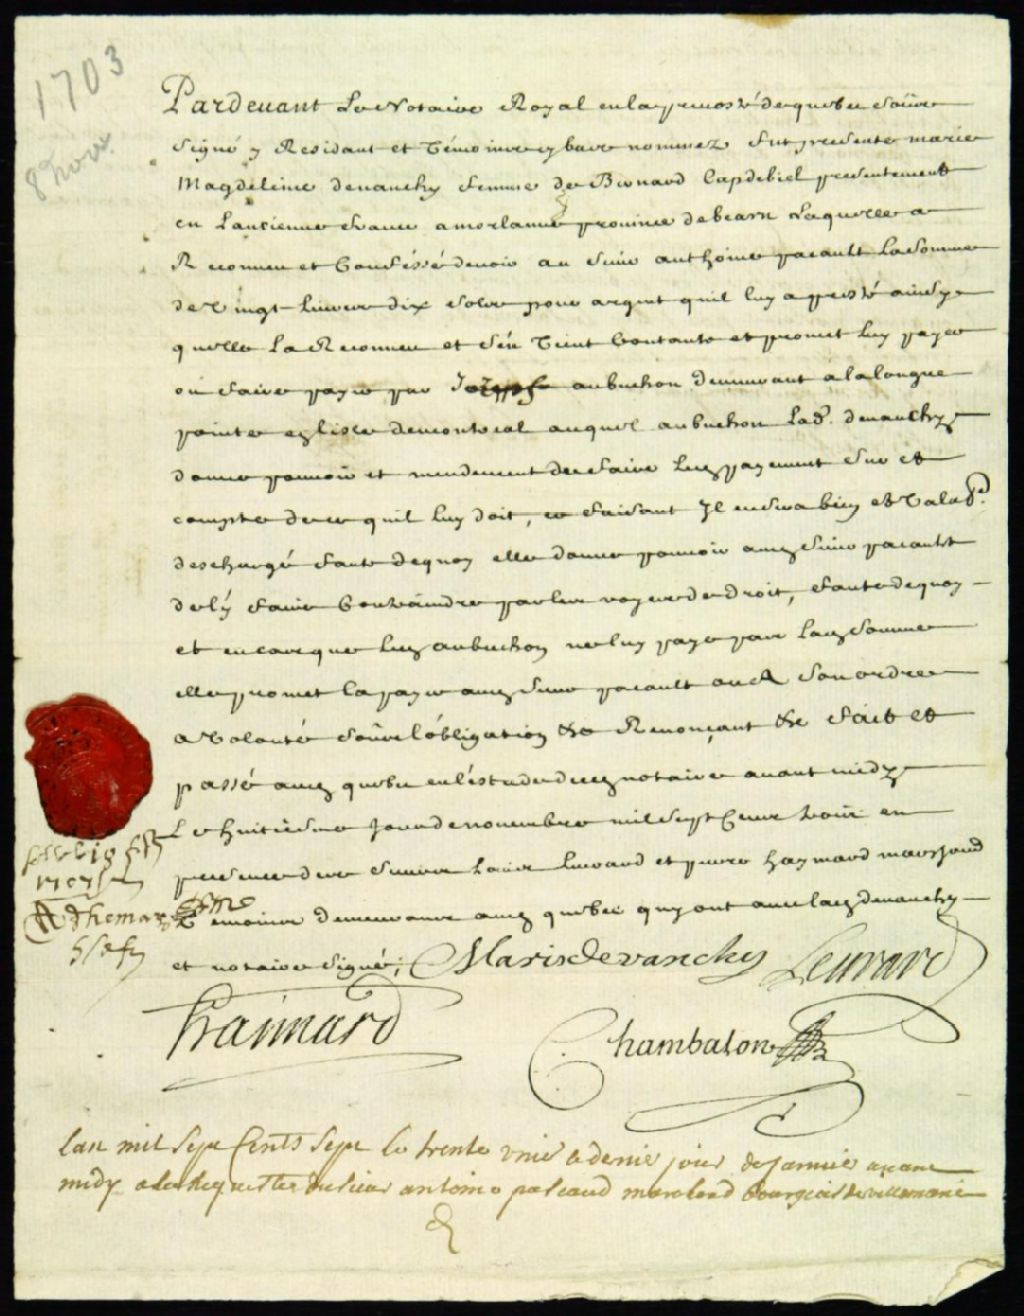 1703
8 Nov.
Pardevant Le Notaire Royal en la prevosté de quebec Soûs
Signé y Residant et Témoins cy bas nommez fut presente marie
Magdeleine devanchy femme de Bernard Capdebiel presentement
en Lancienne france a morlanne province de bearn Laquelle a
Reconneu et Confessé devoir au Sieur anthoine pacault La Somme
de Vingt Livres dix Sols pour argent quil luy a presté ainsy
quelle La Reconneu et sen Tient Contante et promet luy payer
ou faire payer par aubuchon demeurant a la longue
pointe en lisle de montreal auquel aubuchon Lad. devanchy
donne pouvoir et mendement de faire led payement Sur et
compte de ce quil luy doit, ce faisant Il en Sera bien et Valabt
deschargé faute de quoy elle donne pouvoir aud Sieur pacault
de ly faire Contraindre par les voyes de droit, faute de quoy
et en cas que led aubuchon ne luy paye pas lad Somme
elle promet la payer aud Sieur pacault ou a Son ordre
a Volonté Soûs l'obligation &c Renonçant &c fait et
passé aud quebec en l'estude dud notaire avant midy
Le huitiesme Jour de novembre mil Sept Cent trois en
presence des Sieurs Levrard et pierre haymard marchand
Témoins demeurans aud quebec quy ont avec lad devanchy
et notaire Signé;
Marie devanchy Levrard
haimard
Chambalon
Lan mil Sept Cents Sept le trente unie & dernie jour de Janvie avant
midy a la Requeste du sieur antoine pascaud marchand bourgeois de villemarie